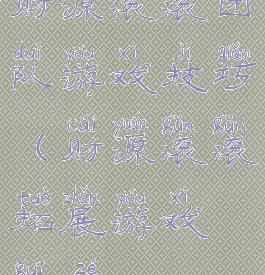 财源滚滚团
duì yóu xì jì qiǎo
队游戏技巧
cái yuán gǔn gǔn
（财源滚滚
tuò zhǎn yóu xì
拓展游戏
guī zé